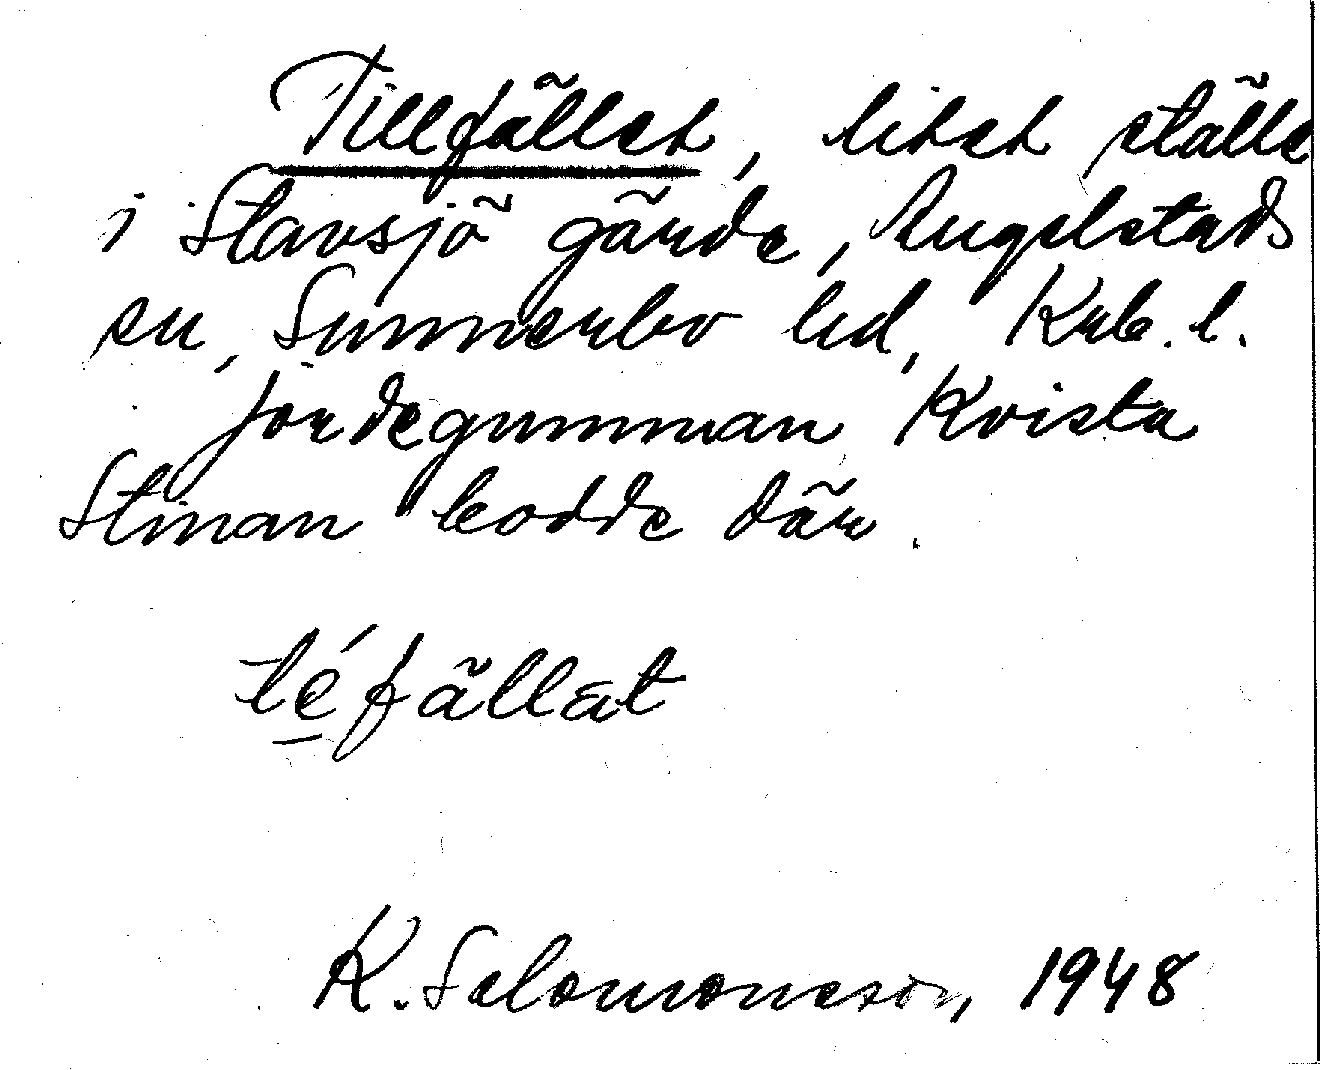 Tillfället, litet ställe
i Stavsjö gärde, Angelstads
sn, Sunnerbo hd, Krb. l.
Jordegumman Kvista
Stinan bodde där.
téfällat
K. Salomonsson, 1948